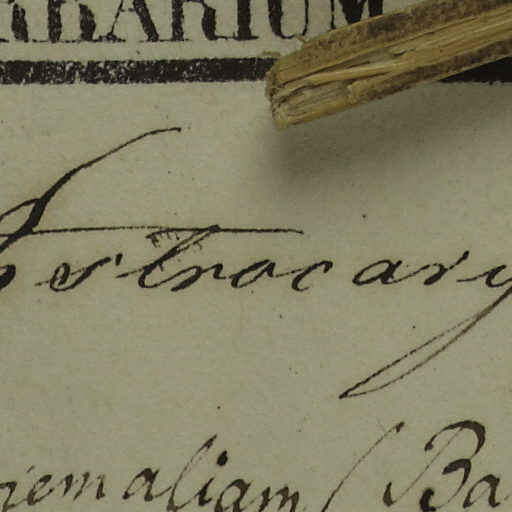 RBARIUM
estrocary
iemaliam (Ba